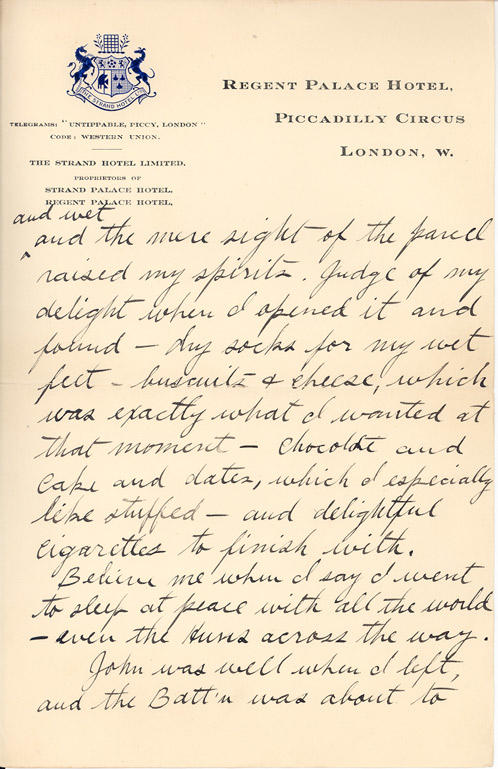 THE STRAND HOTEL LTD
REGENT PALACE HOTEL,
PICCADILLY CIRCUS
LONDON, W.
TELEGRAMS: "UNTIPPABLE, PICCY, LONDON"
CODE: WESTERN UNION.
THE STRAND HOTEL LIMITED.
PROPRIETORS OF
STRAND PALACE HOTEL,
REGENT PALACE HOTEL,
and wet
and the mere sight of the parcel
raised my spirits. Judge of my
delight when I opened it and
found – dry socks for my wet
feet – buscuits & cheese, which
was exactly what I wanted at
that moment – chocolate and
cake and dates, which I especially
like stuffed – and delightful
cigarettes to finish with.
Believe me when I say I went
to sleep at peace with all the world
– even the Huns across the way.
John was well when I left,
and the Batt'n was about to